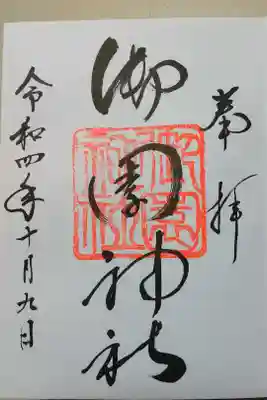 奉拝
御園神社
令和四年十月九日